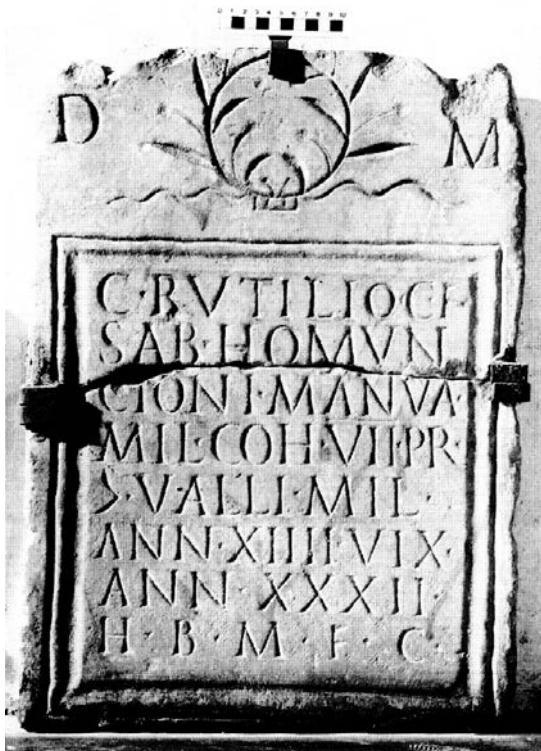 0 1 2 3 4 5 6 7 8 9 10
D M
C·RVTILIO C F
SAB·HOMVN
CIONI·MANVA·
MIL·COH·VII·PR·
>·VALLI·MIL·
ANN·XIIII·VIX·
ANN·XXXII·
H·B·M·F·C·